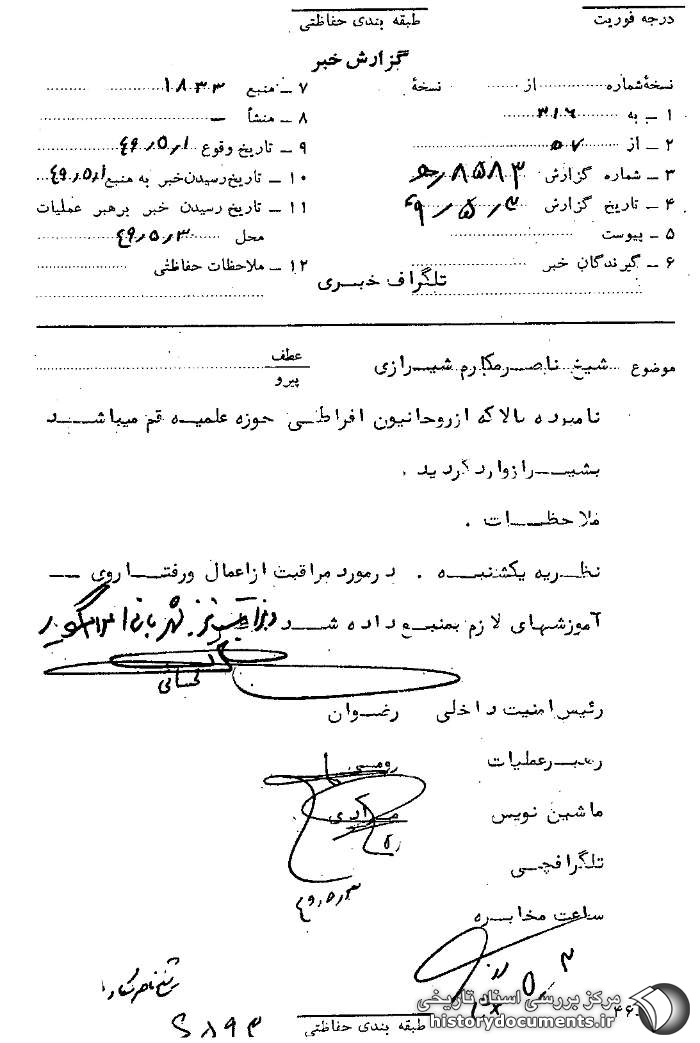 درجه فوریت
طبقه بندی حفاظتی
گزارش خبر
نسخهٔ شماره از نسخهٔ
۱ ــ به ۳۱۶
۲ ــ از ۵۷
۳ ــ شماره گزارش ۸۵۸۳
۴ ــ تاریخ گزارش ۴۹/۵/۳
۵ ــ پیوست
۶ ــ گیرندگان خبر
۷ ــ منبع ۱۸۳۳
۸ ــ منشأ ــ
۹ ــ تاریخ وقوع ۴۹/۵/۱
۱۰ ــ تاریخ رسیدن خبر به منبع ۴۹/۵/۱
۱۱ ــ تاریخ رسیدن خبر برهبر عملیات
محل ۴۹/۵/۳
۱۲ ــ ملاحظات حفاظتی
تلگراف خبری
موضوع شیخ ناصر مکارم شیرازی
عطف
پیرو
نامبرده بالا که از روحانیون افراطی حوزه علمیه قم میباشد
بشیراز وارد گردید .
ملاحظات .
نظریه یکشنبه . در مورد مراقبت از اعمال و رفتار وی ــ
آموزشهای لازم بمنبع داده شد
رئیس امنیت داخلی رضوان
رهبر عملیات
ماشین نویس مرادی
تلگرافچی
ساعت مخابره
۴۹/۵/۳
طبقه بندی حفاظتی
مرکز بررسی اسناد تاریخی
historydocuments.ir